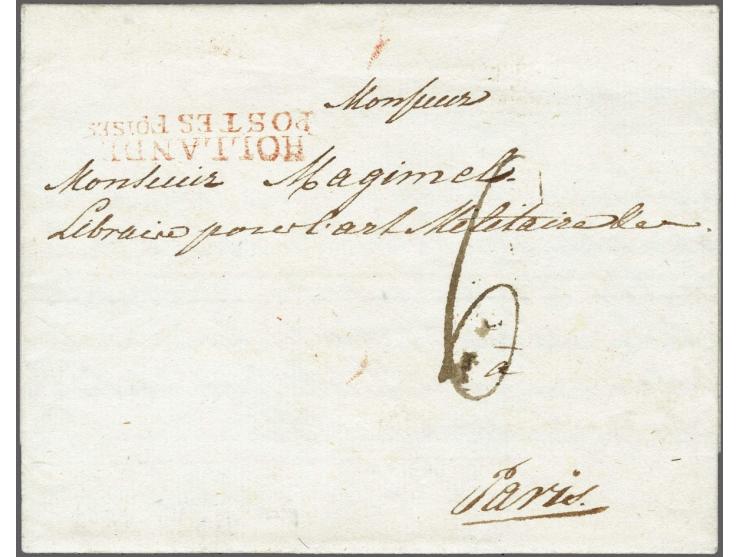 Monsieur
HOLLANDE
POSTES FOISES
Monsieur Magimel.
Libraire pour l'art Militaire &c.
6
à
Paris.